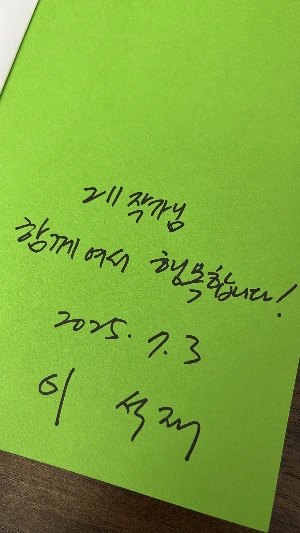 작가님
함께여서 행복합니다!
2025. 7. 3
이 석재